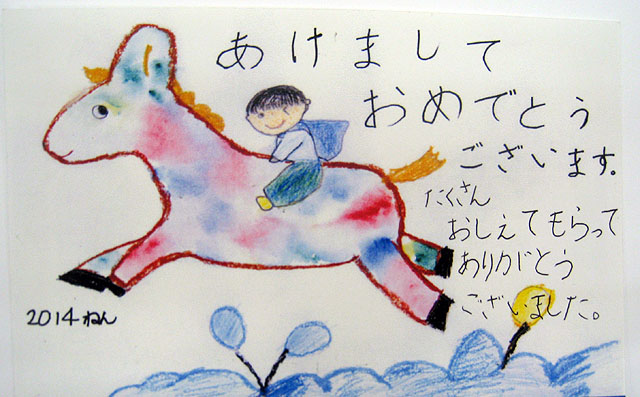 あけまして
おめでとう
ございます。
たくさん
おしえてもらって
ありがとう
ございました。
2014ねん